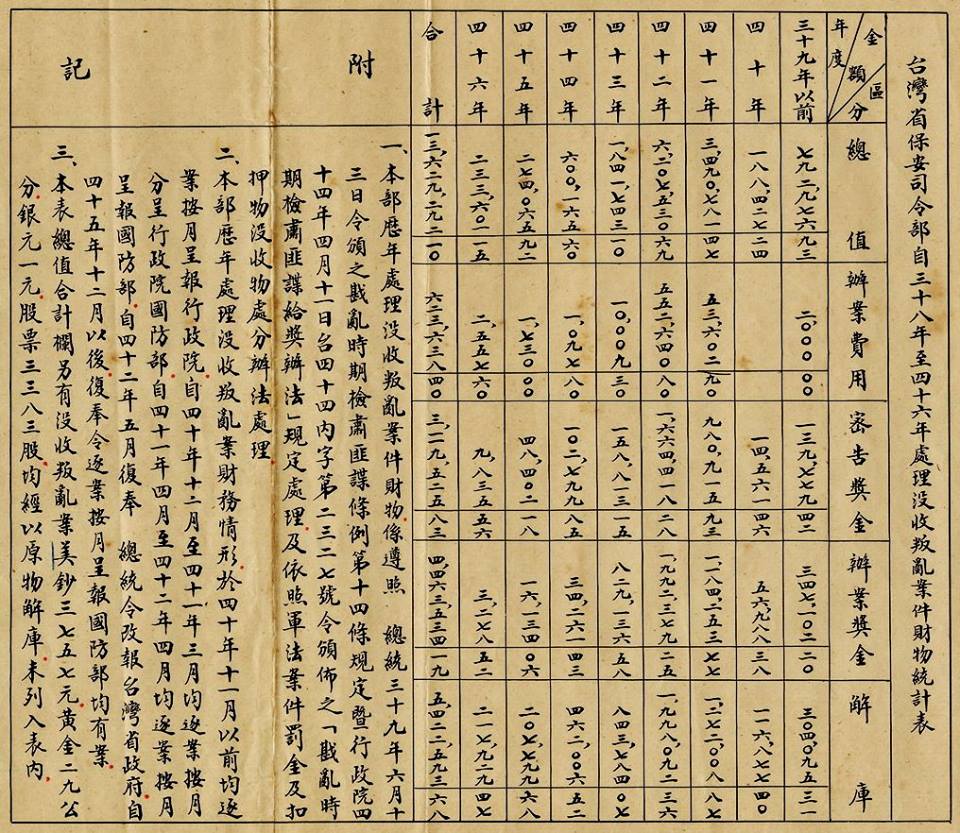 台灣省保安司令部自三十八年至四十六年處理没收叛亂案件財物統計表
金額 區分 年度 總值 辦案費用 密告獎金 辦案獎金 解庫
三十九年以前 七九二,九七六 九三 二,000 00 一三九,七七九 四二 三四七,一0二 二0 三0四,0九五 三一
四十年 一八八,四二七 二四 一四,五六一 四六 五六,九八八 三八 一一六,八七七 四0
四十一年 三,四九0,七八一 四七 五三,六0二 九0 九八0,九一五 九三 一,一八四,二五三 七七 一,二七二,00八 八七
四十二年 六,二0七,五三0 六九 五五二,六四0 八0 一,六六四,四一八 二八 一,九九二,三七九 二五 一,九九八,0九二 三六
四十三年 一,八四一,七四三 一0 一0,00九 三0 一五八,八一三 一五 八二九,一三六 五八 八四三,七八四 0七
四十四年 六00,一六五 六0 一,0九七 八0 一0二,七九九 八五 三四,二六一 四三 四六二,00六 五二
四十五年 二七四,0六五 九二 一,七三0 00 四八,四0二 一八 一六,一三四 0六 二0七,七九九 六八
四十六年 二三三,六0一 一五 二,五五七 六0 九,八三五 五六 三,二七八 五二 二一七,九二九 四七
合計 一三,六二九,二九二 一0 六二三,六三八 四0 三,一一九,五二五 八三 四,四六三,五三四 一九 五,四二二,五九三 六八
附記
一、本部歷年處理没收叛亂案件財物係遵照 總統三十九年六月十
三日令頒之戡亂時期檢肅匪諜條例第十四條規定暨行政院四
十四年四月十一日台四十四內字第二三二七號令頒佈之「戡亂時
期檢肅匪諜給奬辦法」規定處理及依照軍法案件罰金及扣
押物没收物處分辦法處理
二、本部歷年處理没收叛亂案財務情形於四十年十一月以前均逐
案按月呈報行政院自四十年十二月至四十一年三月均逐案按月
分呈行政院國防部自四十一年四月至四十二年四月均逐案按月
呈報國防部自四十二年五月復奉 總統令改報台灣省政府自
四十五年十二月以後復奉令逐案按月呈報國防部均有案
三、本表總值合計欄另有没收叛亂案美鈔三七五七元黃金二九公
分銀元一元股票三三八三股均經以原物解庫未列入表內